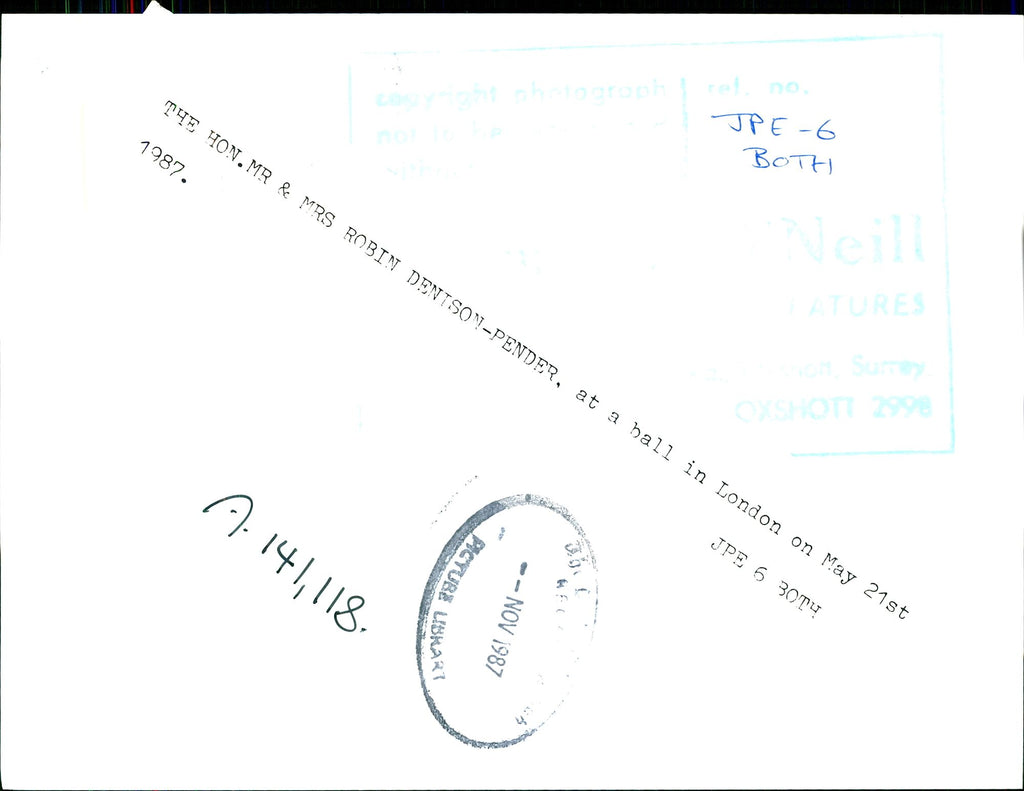 copyright photograph
not to be
ref. no.
JPE-6
BOTH
Neill
FEATURES
Surrey.
OXSHOTT 2998
THE HON.MR & MRS ROBIN DENISON-PENDER, at a ball in London on May 21st
1987.
JPE 6 BOTH
A. 141,118.
- NOV 1987
PICTURE LIBRARY